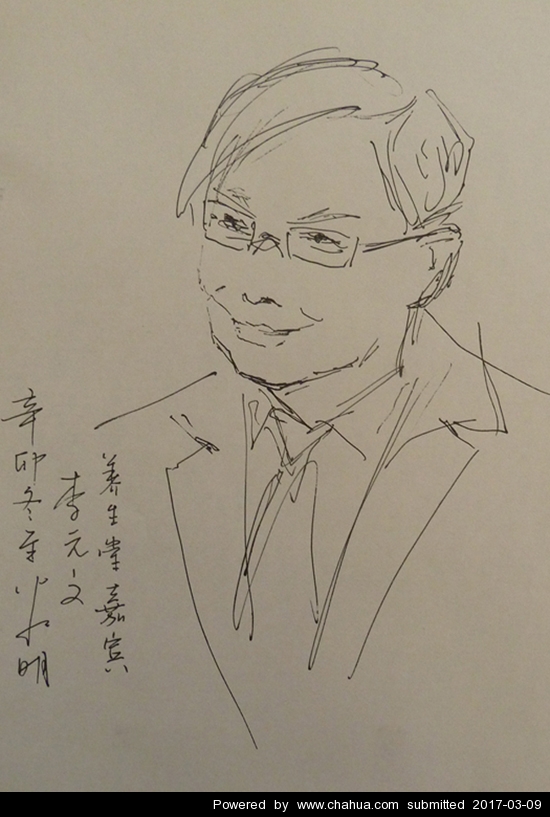 养生堂嘉宾
李元文
辛卯冬至 明
Powered by www.chahua.com submitted 2017-03-09